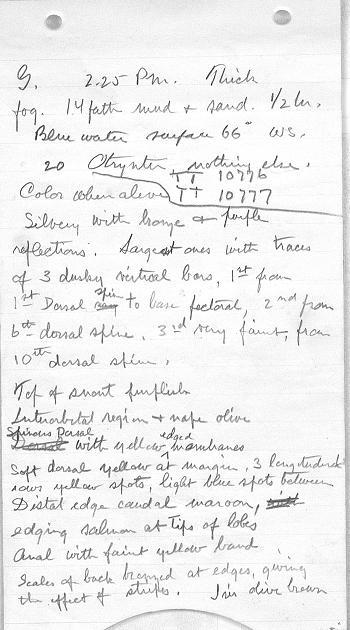 9. 2.25 P.M. Thick
fog. 14 fath mud & sand. 1/2 hr.
Blue water surface 66° W.S.
20 Otrynter, nothing else.
TT 10776
Color when alive TT 10777
Silvery with bronze & purple
reflections. Largest ones with traces
of 3 dusky vertical bars, 1st from
1st Dorsal spine to base pectoral, 2nd from
6th dorsal spine. 3rd very faint, from
10th dorsal spine.
Top of snout purplish
Interorbital region & nape olive
Spinous Dorsal with yellow edged membranes
Soft dorsal yellow at margin, 3 longitudinal
rows yellow spots, light blue spots between
Distal edge caudal maroon,
edging salmon at tips of lobes
Anal with faint yellow band
Scales of back bronzed at edges, giving
the effect of stripes. Iris olive brown